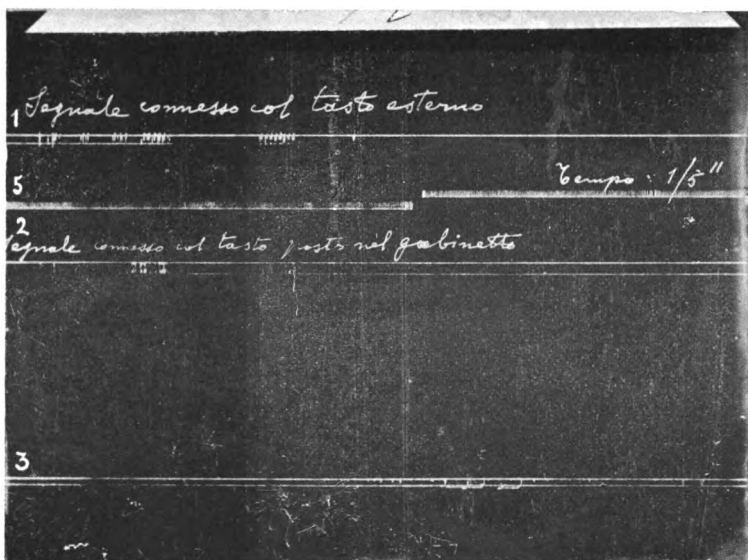 1 Segnale connesso col tasto esterno
5 Tempo: 1/5"
2
Segnale connesso col tasto posto nel gabinetto
3